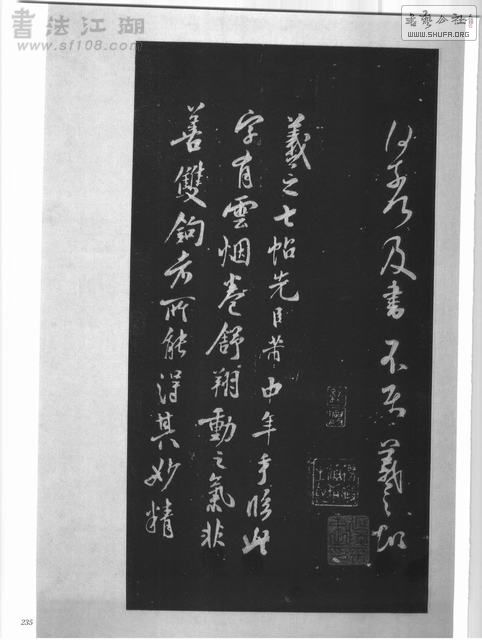 書法江湖
www.sf108.com
書藝公社
WWW.SHUFA.ORG
及書不羲之頓
羲之七帖先臣芾中年手臨此
字有雲烟卷舒翔動之氣非
善雙鉤者所能得其妙精
235